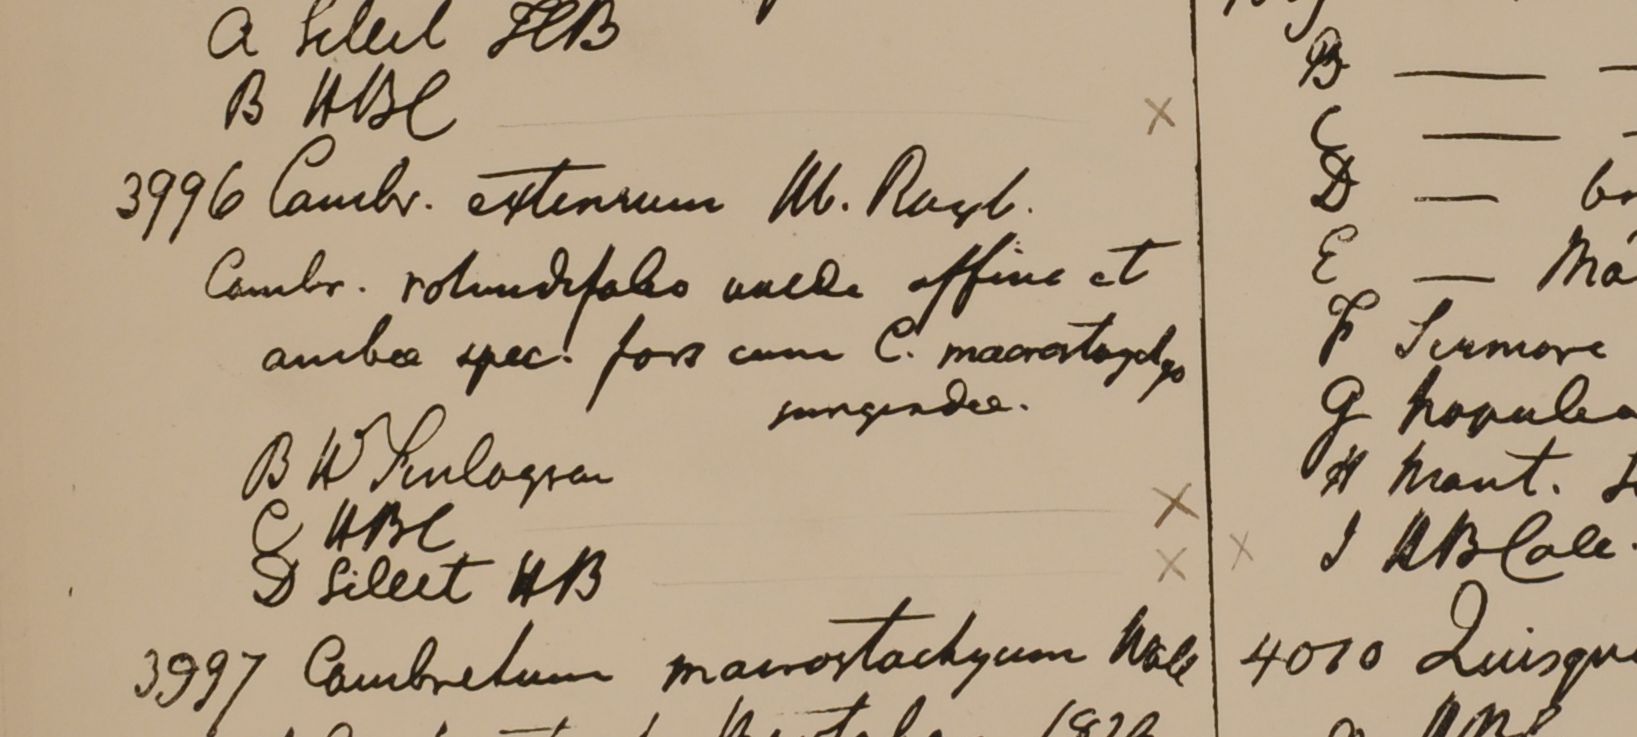 A Silhet HB
B HBC
3996 Combr. extensum W. Roxb.
Combr. rotundifolio valde affine et
ambae spec. fors cum C. macrostachyo
jungendae.
B W
C HBC
D Silhet HB
3997 Combretum macrostachyum Wall
1823
B — —
C — —
D —
E —
F
G Napalea
H Mont.
I HBCale.
4010 Quisqu
HBC